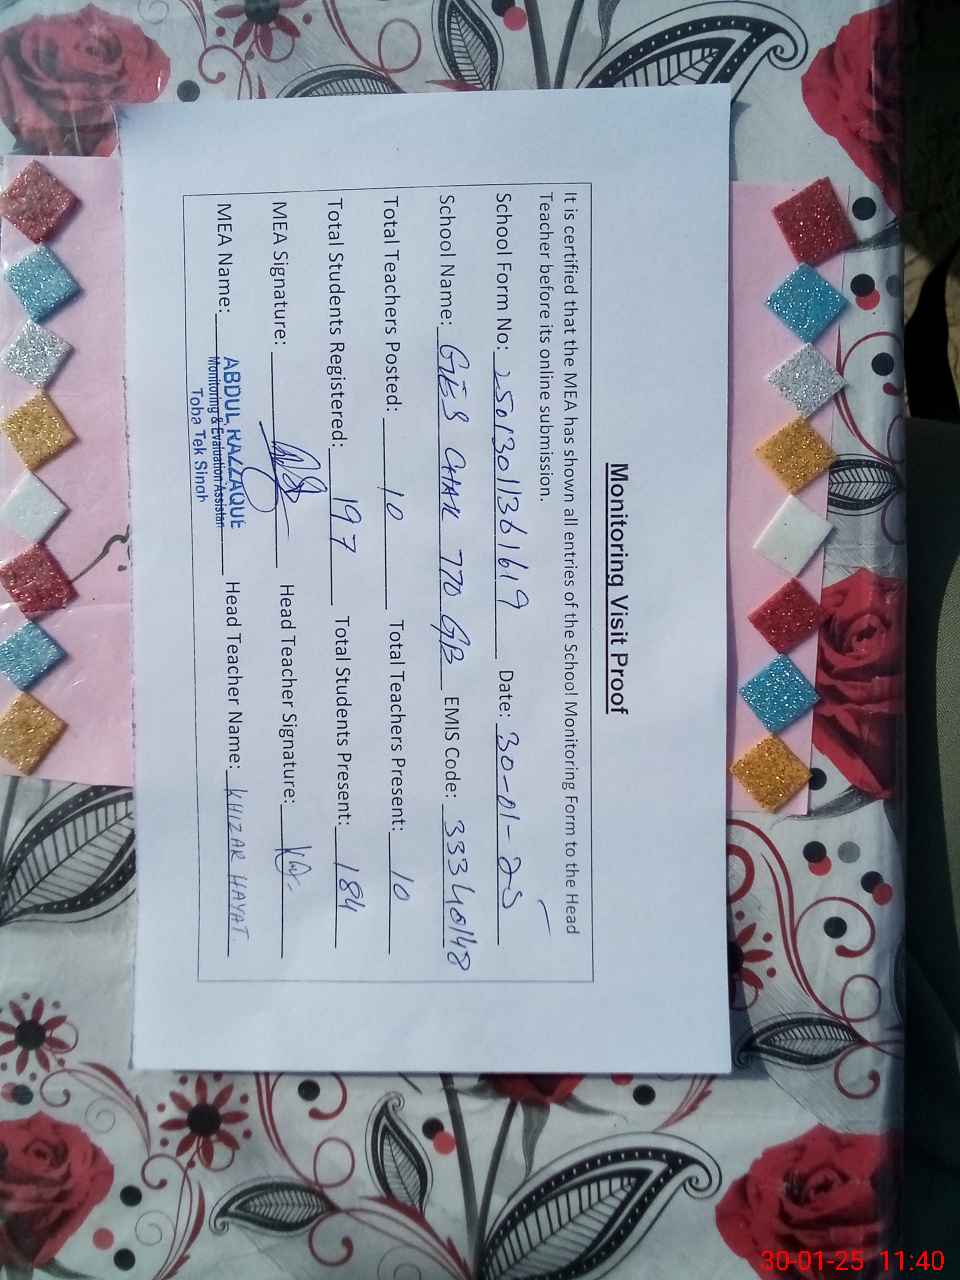 Monitoring Visit Proof
It is certified that the MEA has shown all entries of the School Monitoring Form to the Head
Teacher before its online submission.
School Form No: 25013011361619 Date: 30-01-25
School Name: GES CHAK 770 GB EMIS Code: 33340148
Total Teachers Posted: 10 Total Teachers Present: 10
Total Students Registered: 197 Total Students Present: 184
MEA Signature: Head Teacher Signature:
MEA Name: ABDUL RAZZAQUE Head Teacher Name: KHIZAR HAYAT.
Monitoring & Evaluation Assistan
Toba Tek Singh
30-01-25 11:40